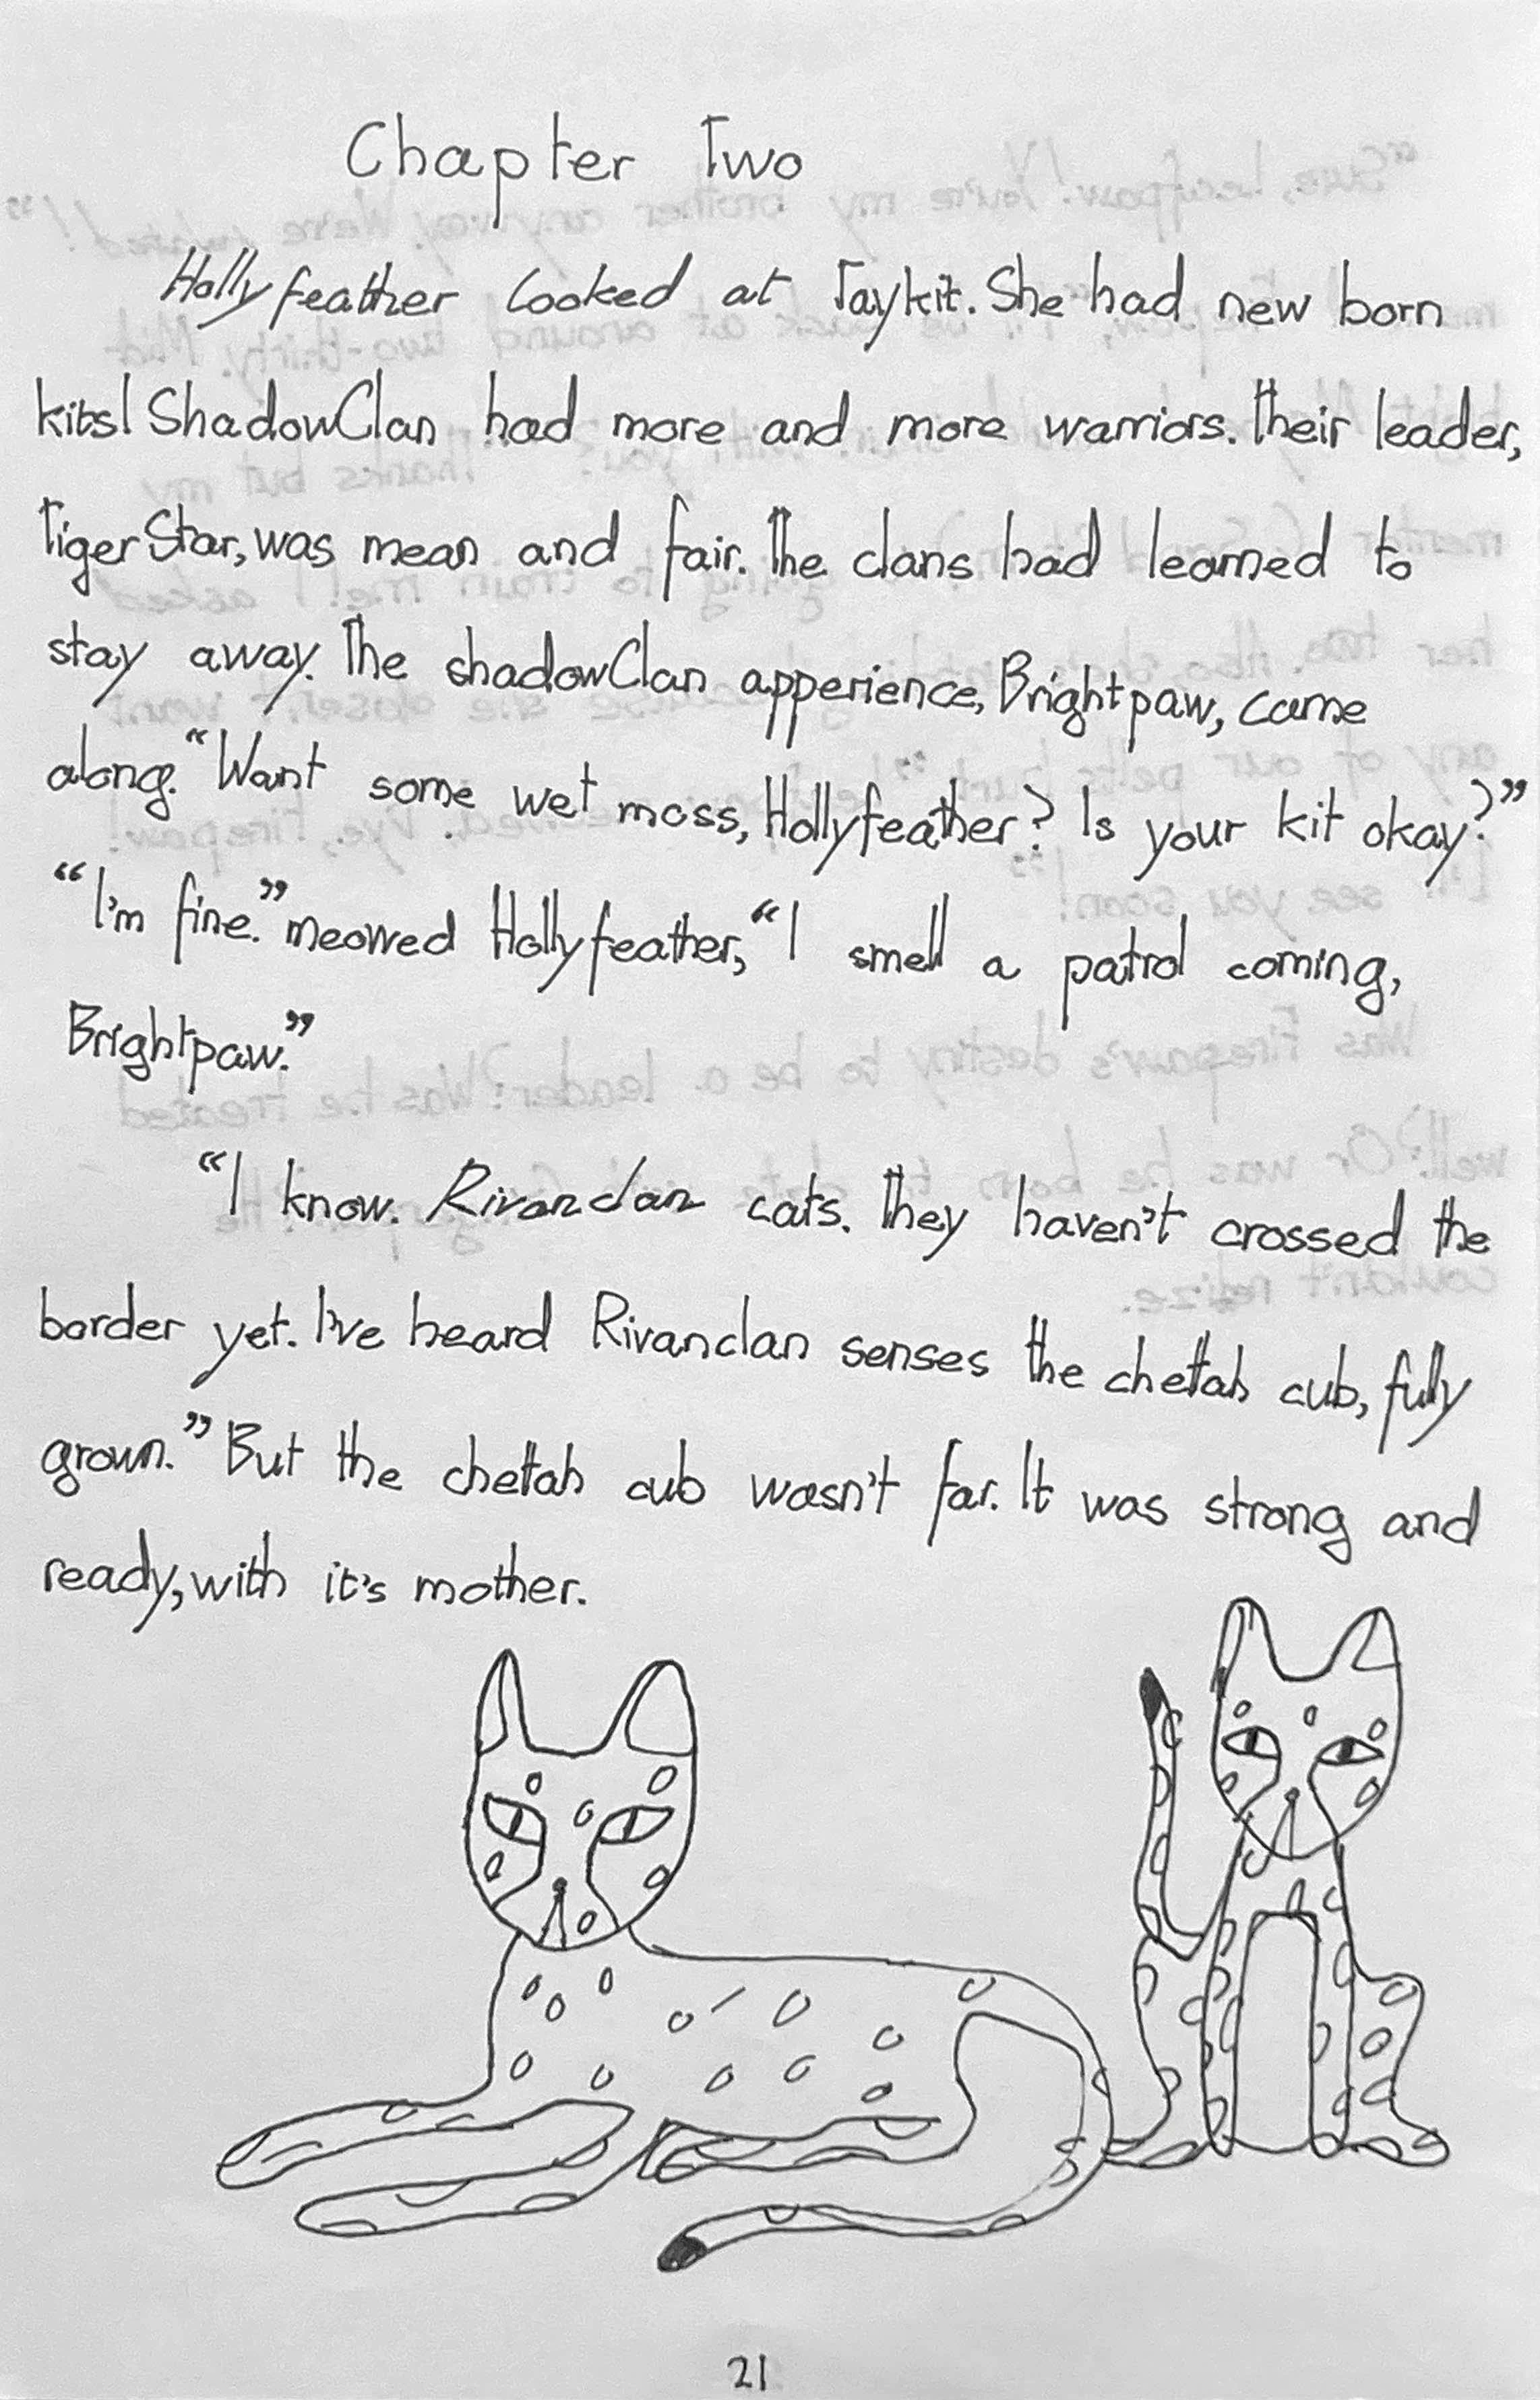 Chapter Two
Hollyfeather looked at Jaykit. She had new born
kits! ShadowClan had more and more warriors. Their leader,
TigerStar, was mean and fair. The clans had learned to
stay away. The shadowClan apperience, Brightpaw, came
along. “Want some wet moss, Hollyfeather? Is your kit okay?”
“I'm fine.” meowed Hollyfeather, “I smell a patrol coming,
Brightpaw.”
“I know. Rivanclan cats. They haven't crossed the
border yet. I've heard Rivanclan senses the chetah cub, fully
grown.” But the chetah cub wasn't far. It was strong and
ready, with it's mother.
21